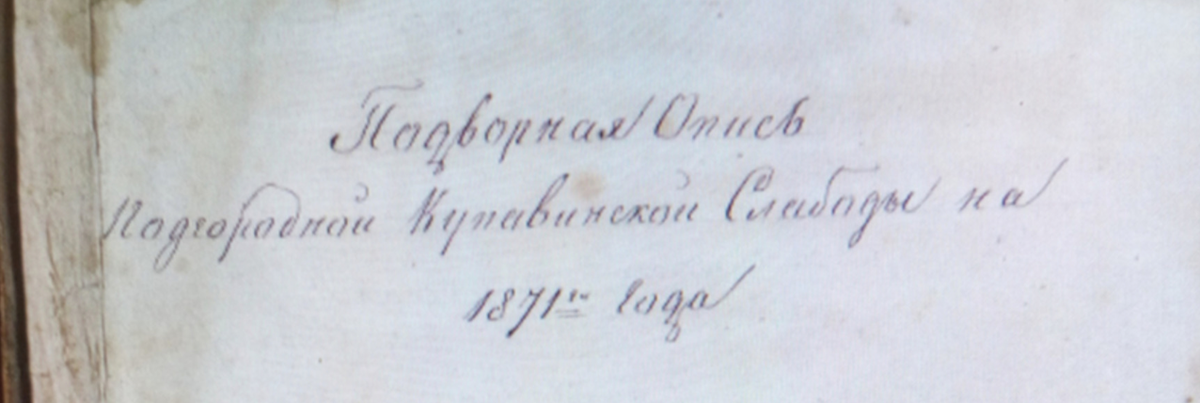 Подворная Опись
Подгородной Купавинской Слабоды на
1871го Года